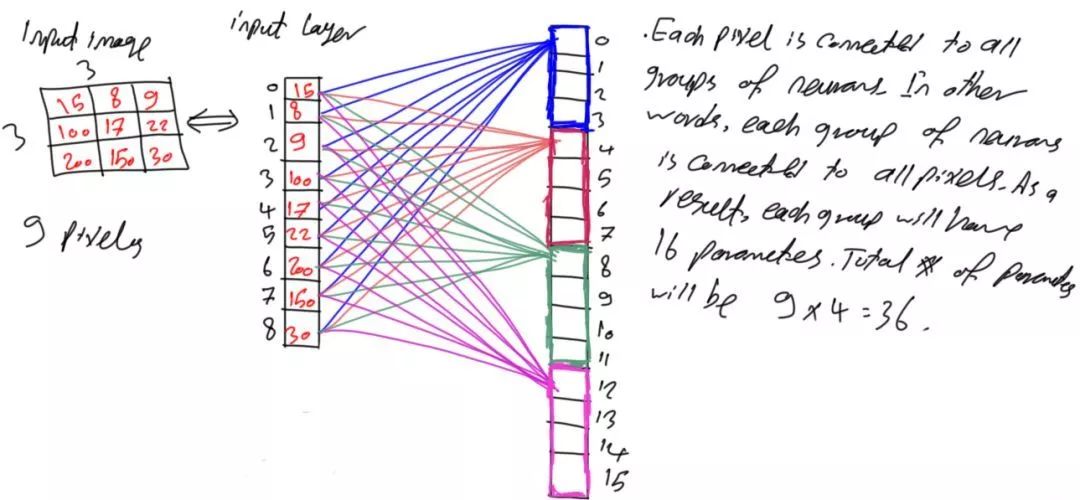 Input image
3
3
15 8 9
100 17 22
200 150 30
9 pixels
input layer
0 15
1 8
2 9
3 100
4 17
5 22
6 200
7 150
8 30
0
1
2
3
4
5
6
7
8
9
10
11
12
13
14
15
. Each pixel is connected to all
groups of neurons In other
words, each group of neurons
is connected to all pixels. As a
result, each group will have
16 parameters. Total # of parameters
will be 9 x 4 = 36.